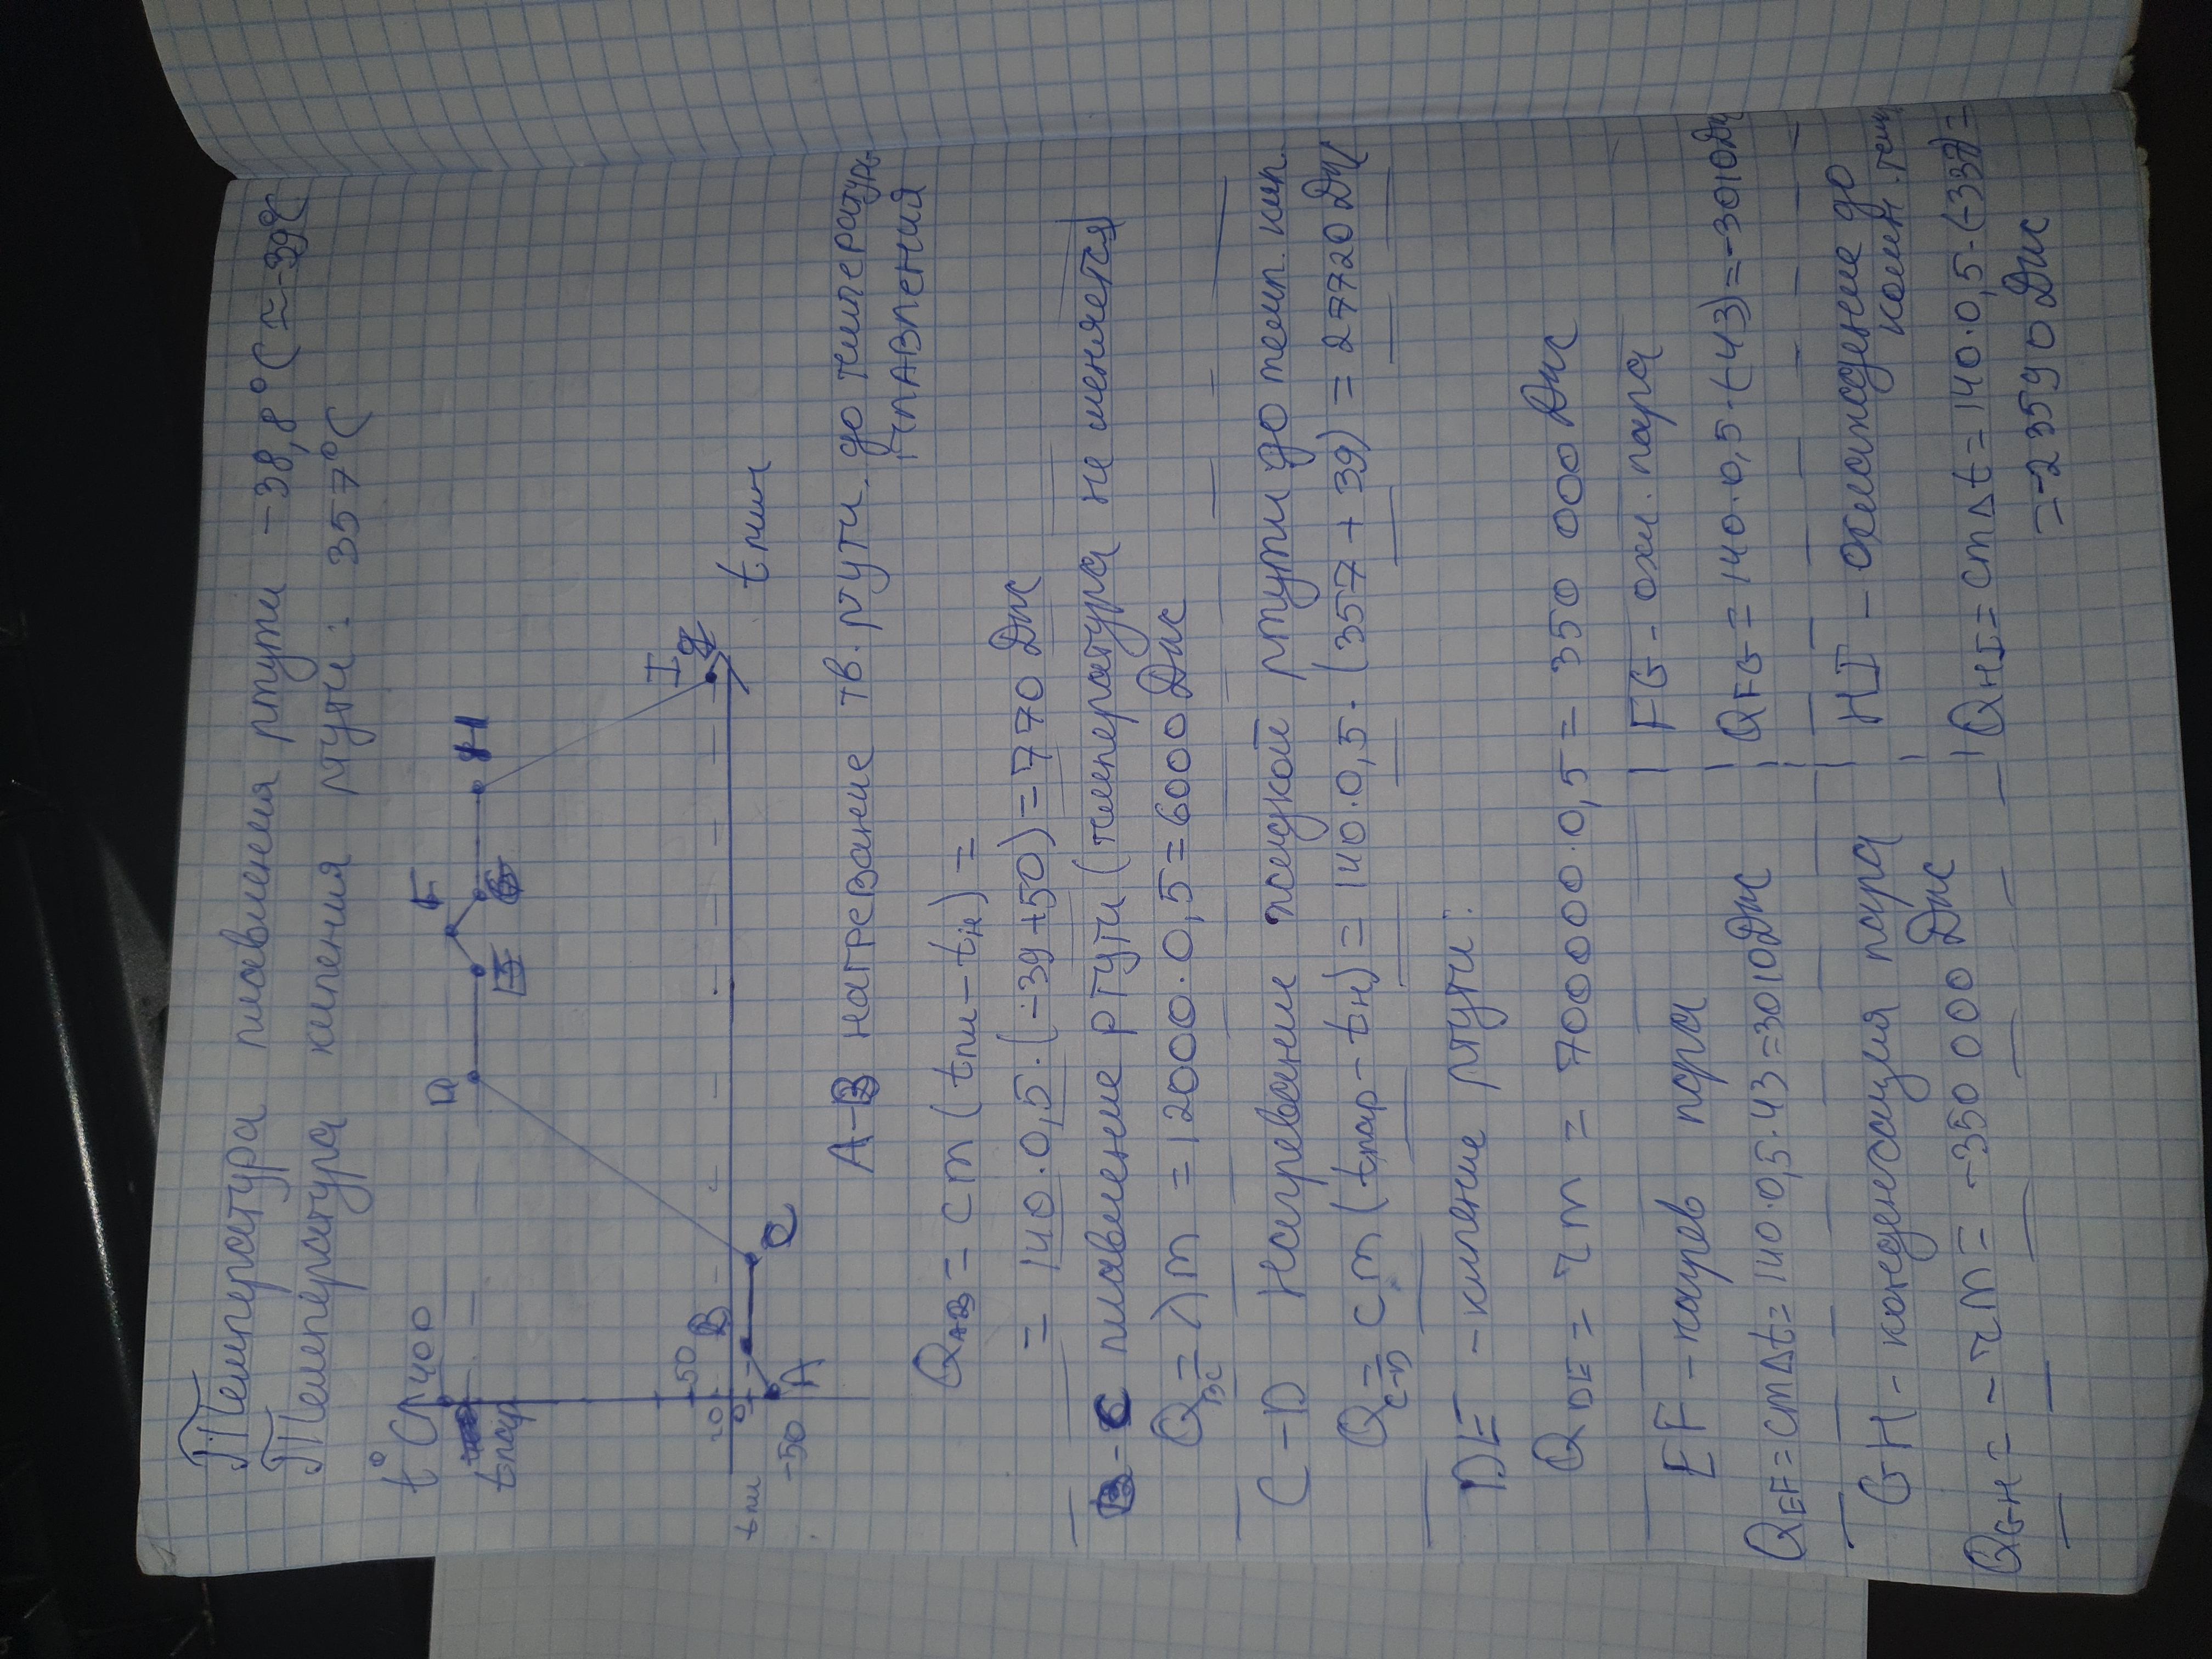 Температура плавления ртути -38,8°C (≈-39°C
Температура кипения ртути: 357°C
t°C 400
t пар
50
20
0
t пл
-50
A
B
C
D
E
F
G
H
I
t мин
A-B нагревание тв. ртути до температуры плавления
Q AB = cm (t пл - t н) =
= 140·0,5·(-39+50) = 770 Дж
B-C плавление ртути (температура не меняется)
Q BC = λm = 12000·0,5 = 6000 Дж
C-D Нагревание жидкой ртути до темп. кип.
Q C-D = cm (t пар - t н) = 140·0,5·(357+39) = 27720 Дж
DE - кипение ртути:
Q DE = rm = 700000·0,5 = 350 000 Дж
EF - нагрев пара
Q EF = cmΔt = 140·0,5·43 = 3010 Дж
FG - охл. пара
Q FG = 140·0,5·(-43) = -3010 Дж
GH - конденсация пара
Q GH = -rm = -350 000 Дж
HI - охлаждение до комн. темп
Q HI = cmΔt = 140·0,5·(-337) =
= -23590 Дж